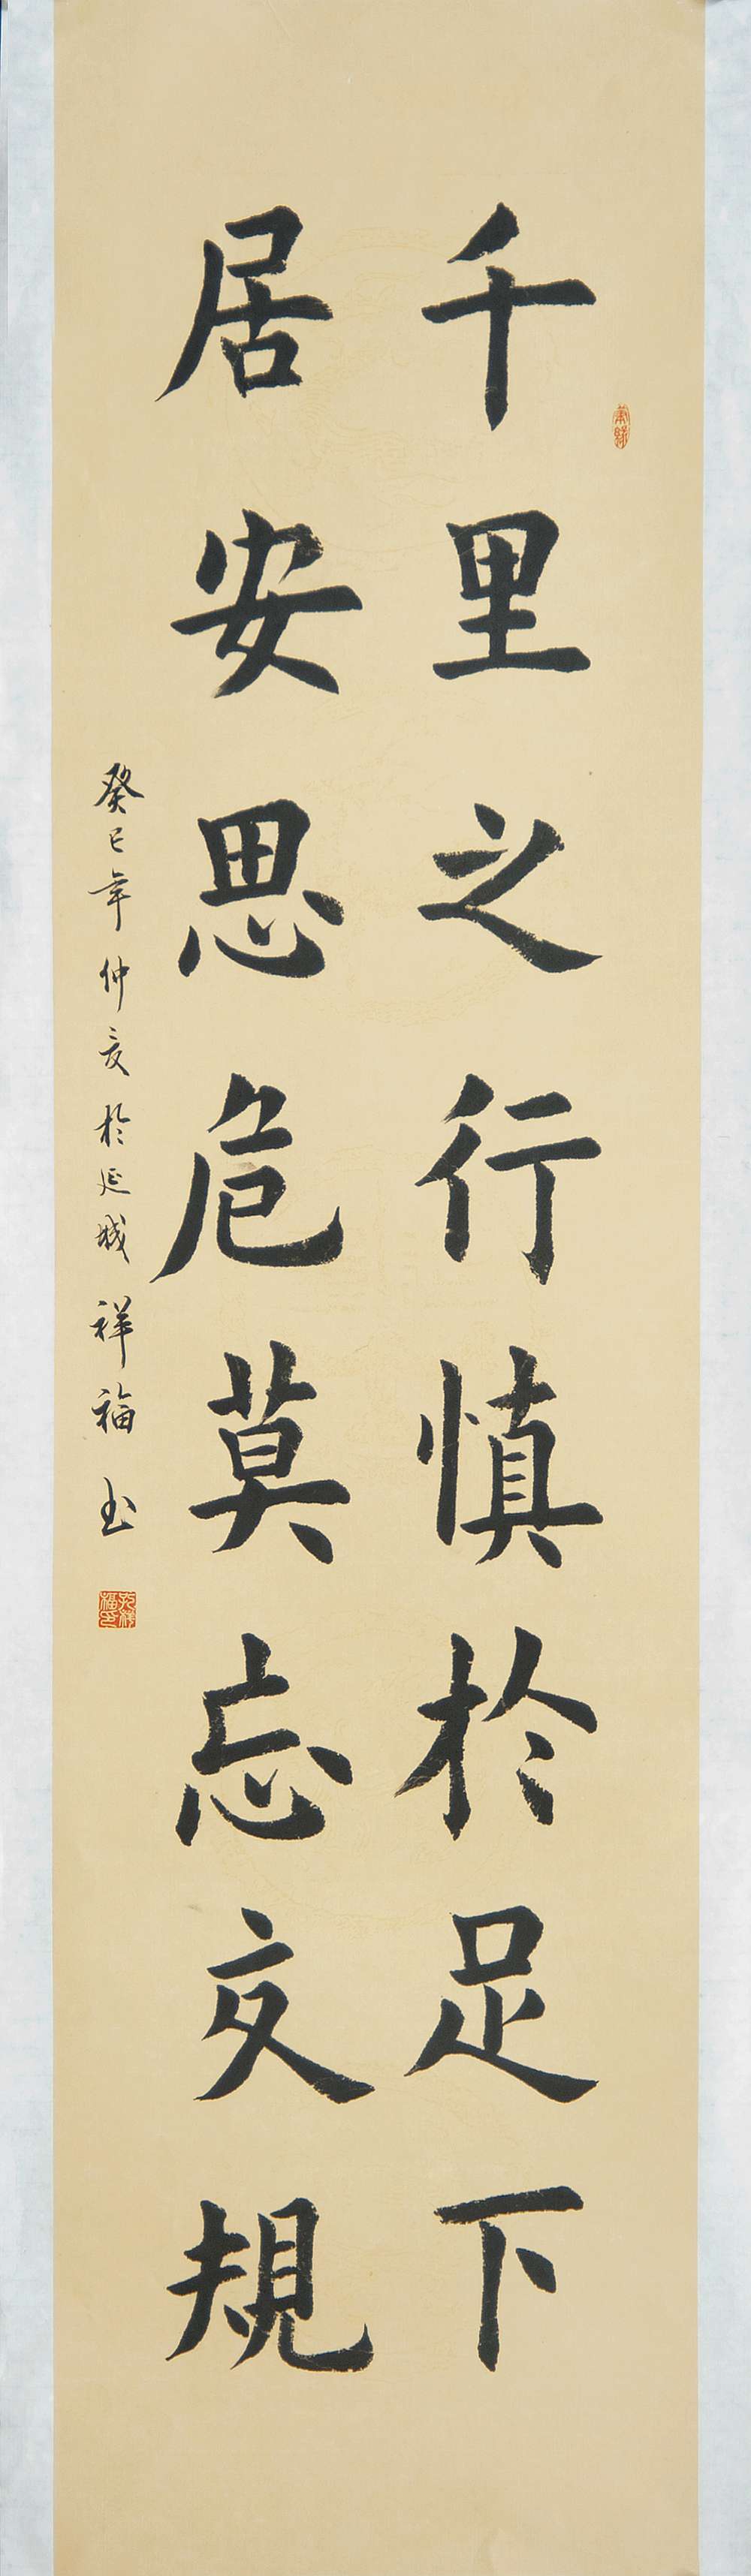 千里之行慎於足下
居安思危莫忘交規
癸巳年仲夏於延城祥福书